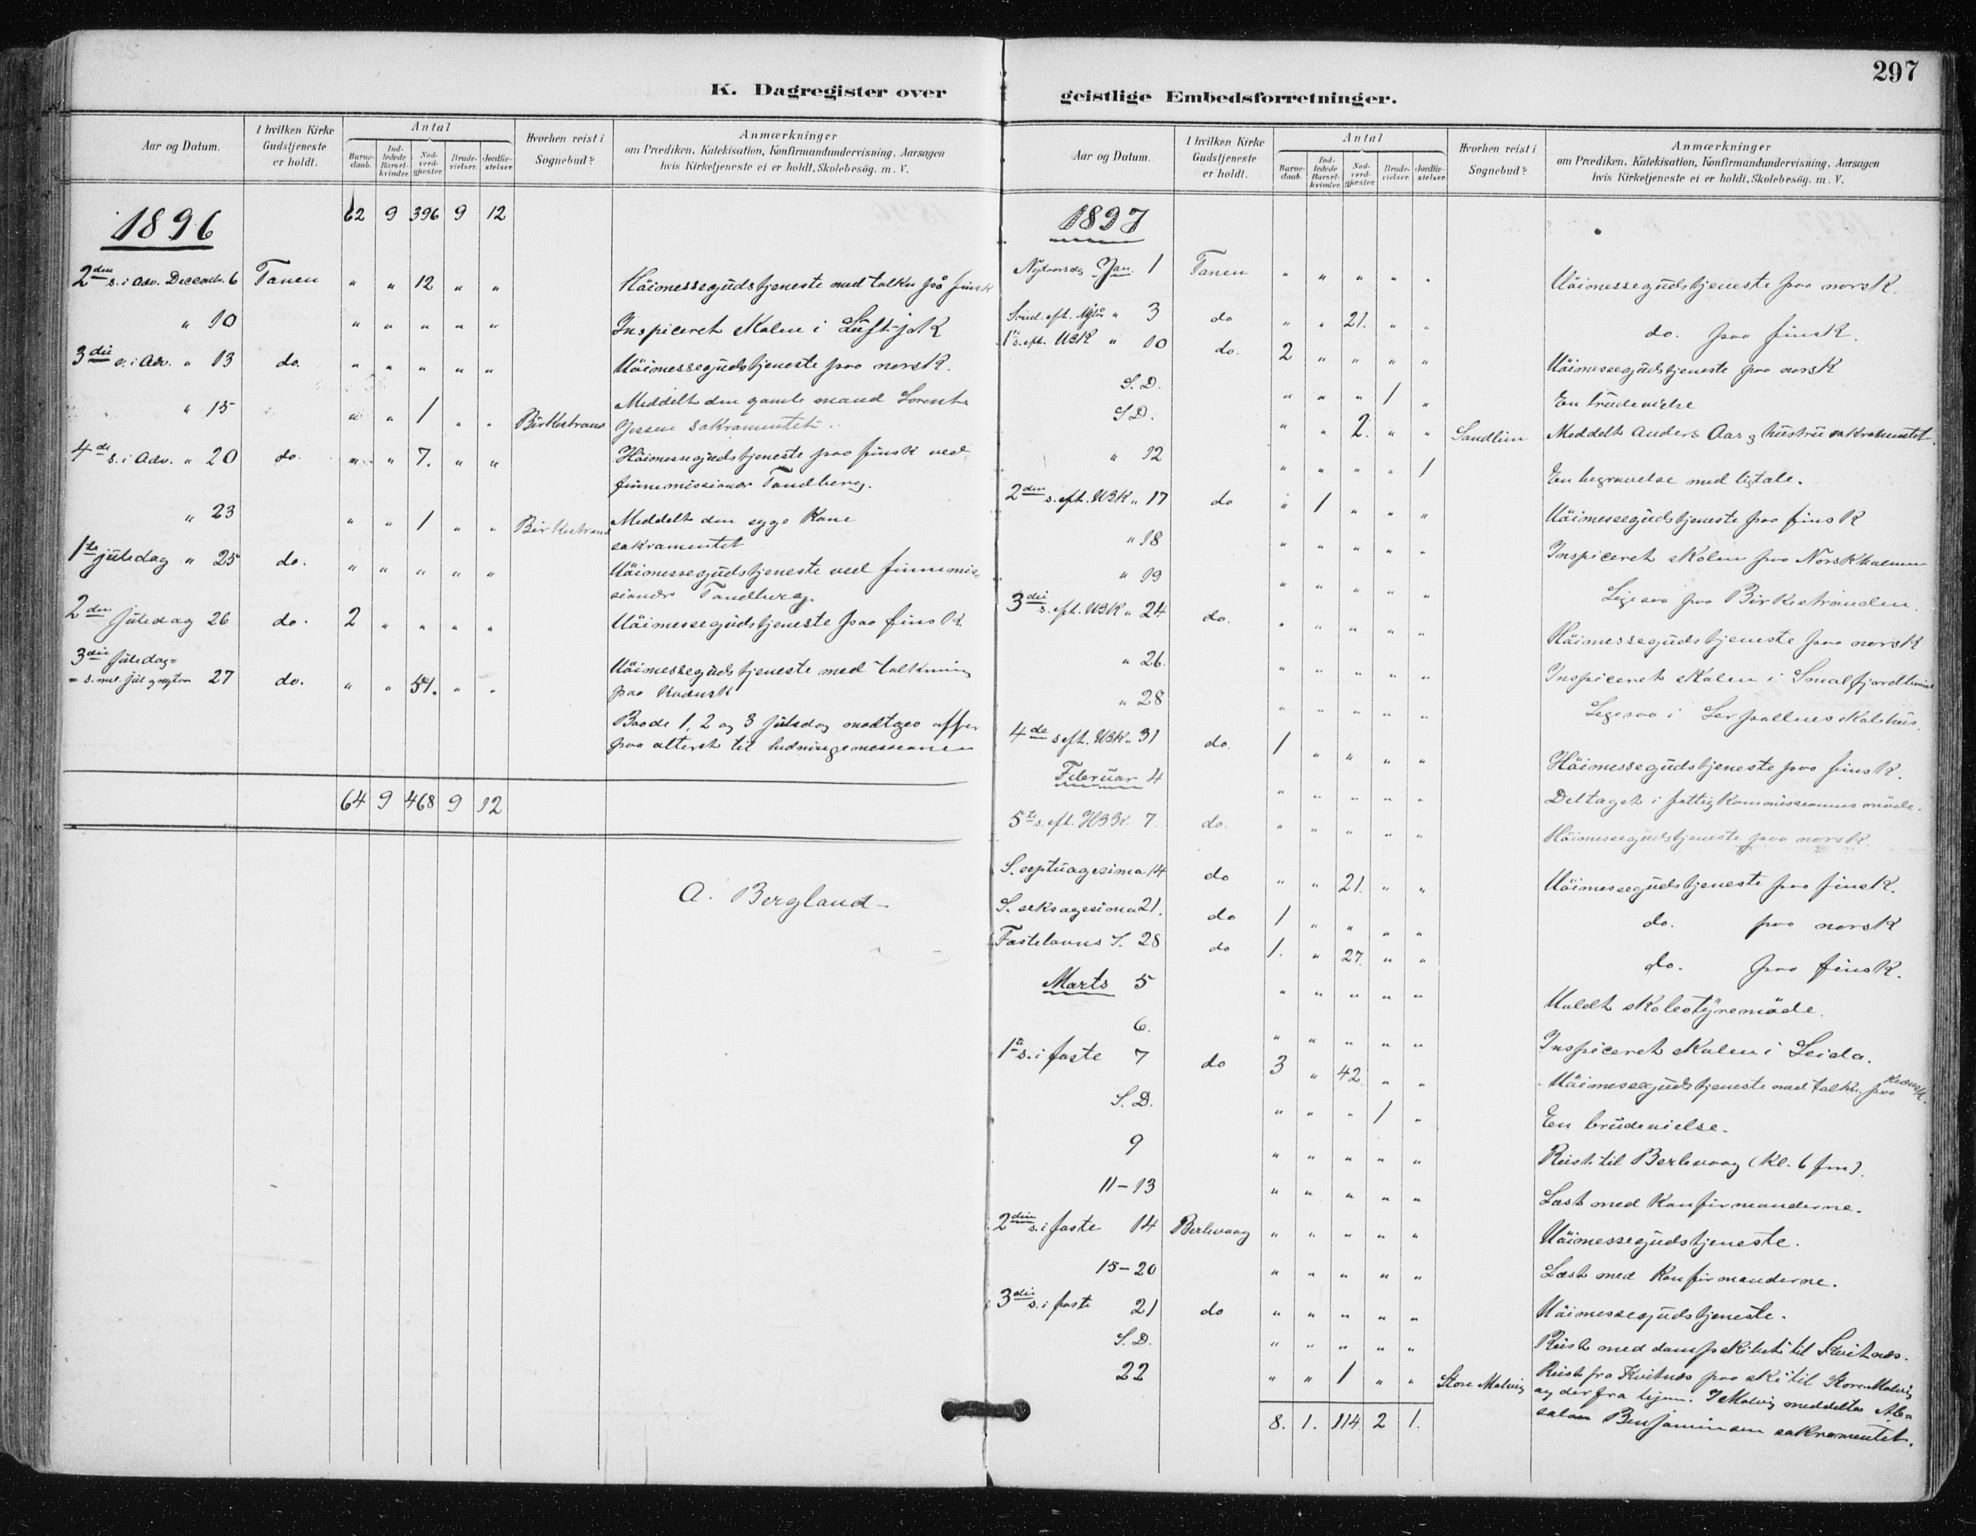 297
K. Dagregister over geistlige Embedsforretninger.
Aar og Datum. I hvilken Kirke Gudstjeneste er holdt. Antal Barnedaab. Indledede Barselkvinder. Nadverdgjæster. Brudevielser. Jordfæstelser. Hvorhen reist i Sognebud? Anmærkninger om Prædiken, Katekisation, Konfirmandundervisning, Aarsagen hvis Kirketjeneste ei er holdt, Skolebesøg. m. V.
1896 62 9 396 9 12
2den s. i adv. Decemb. 6 Tanen " " 12 " " Höimessegudstjeneste med tolkn. på finsk
" 10 " " " " " Inspiceret skolen i Luftjok
3die s. i adv. " 13 do. " " " " " Höimessegudstjeneste paa norsk.
" 15 " " 1 " " Birkestrand Meddelt den gamle mand Lorents
Jessen sakramentet.
4de s. i adv. " 20 do. " " 7. " " Höimessegudstjeneste paa finsk ved
finnemissionær Tandberg.
" 23 " " 1 " " Birkestrand Meddelt den syge kone
sakramentet
1ste juledag " 25 do. " " " " " Höimessegudstjeneste ved finnemis-
sionær Tandberg.
2den juledag 26 do. 2 " " " " Höimessegudstjeneste paa finsk
3die juledag =
= s. mel. jul og nytaar 27 do. " " 51. " " Höimessegudstjeneste med tolkning
paa kvænsk
Baade 1, 2 og 3 juledag modtoges offer
paa alteret til hedningemissionen
64 9 468 9 12
A. Bergland
Aar og Datum. I hvilken Kirke Gudstjeneste er holdt. Antal Barnedaab. Indledede Barselkvinder. Nadverdgjæster. Brudevielser. Jordfæstelser. Hvorhen reist i Sognebud? Anmærkninger om Prædiken, Katekisation, Konfirmandundervisning, Aarsagen hvis Kirketjeneste ei er holdt, Skolebesøg. m. V.
1897
Nytaarsdag Jan. 1 Tanen " " " " " Höimessegudstjeneste paa norsk.
Sönd. eft. Nytår " 3 do " " 21. " " do. paa finsk.
1ste s. eft. H3K " 10 do. 2 " " " " Höimessegudstjeneste paa norsk
S. D. " " " 1 " En brudevielse
S. D. " " 2. " " Sandlien Meddelt Anders Aas og hustru sakramentet.
" 12 " " " " 1 En begravelse med ligtale.
2den s. eft. H3K " 17 do " 1 " " " Höimessegudstjeneste paa finsk
" 18 " " " " " Inspiceret skolen paa Norskholmen
" 19 " " " " " Ligesaa paa Birkestranden.
3die s. eft. H3K " 24 do. " " " " " Höimessegudstjeneste paa norsk
" 26. " " " " " Inspiceret skolen i Smalfjord
" 28 " " " " " Ligesaa i
4de s. eft. H3K " 31 do. 1 " " " " Höimessegudstjeneste paa finsk.
Februar 4 " " " " " Deltaget i fattigkommissionens möde.
5te s. eft. H3K. 7. do. " " " " " Höimessegudstjeneste paa norsk.
S. septuagesima 14 do " " 21. " " Höimessegudstjeneste paa finsk.
S. seksagesima 21. do 1 " " " " do. paa norsk
Fastelavns S. 28 do 1. " 27. " " do. paa finsk.
Marts 5 " " " " " Holdt skolestyremöde.
6. " " " " " Inspiceret skolen i Seida.
1ste s. i faste 7 do 3 " 42 " " Höimessegudstjeneste med tolkn. paa kvænsk.
S. D. " " " 1 " En brudevielse.
9 " " " " " Reist til Berlevaag (kl. 6 fm).
11-13 " " " " " Læst med konfirmanderne.
2den s. i faste 14 Berlevaag " " " " " Höimessegudstjeneste.
15-20 " " " " " Læst med konfirmanderne.
3die s. i faste 21 do " " " " " Höimessegudstjeneste.
S. D. " " " " " Reist med dampskibet til Kvitnæs.
22 " " 1 " " Store Molvig Reist fra Kvitnæs paa ski til Store Molvig
og derfra hjem. I Molvig meddeltes Ab-
salon Benjaminsen sakramentet.
8. 1. 114. 2 1.